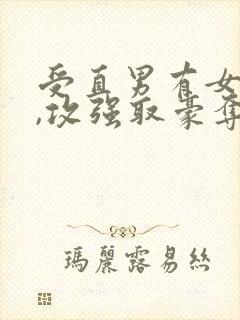 受直男有女
,攻强取豪夺
瑪麗露易絲